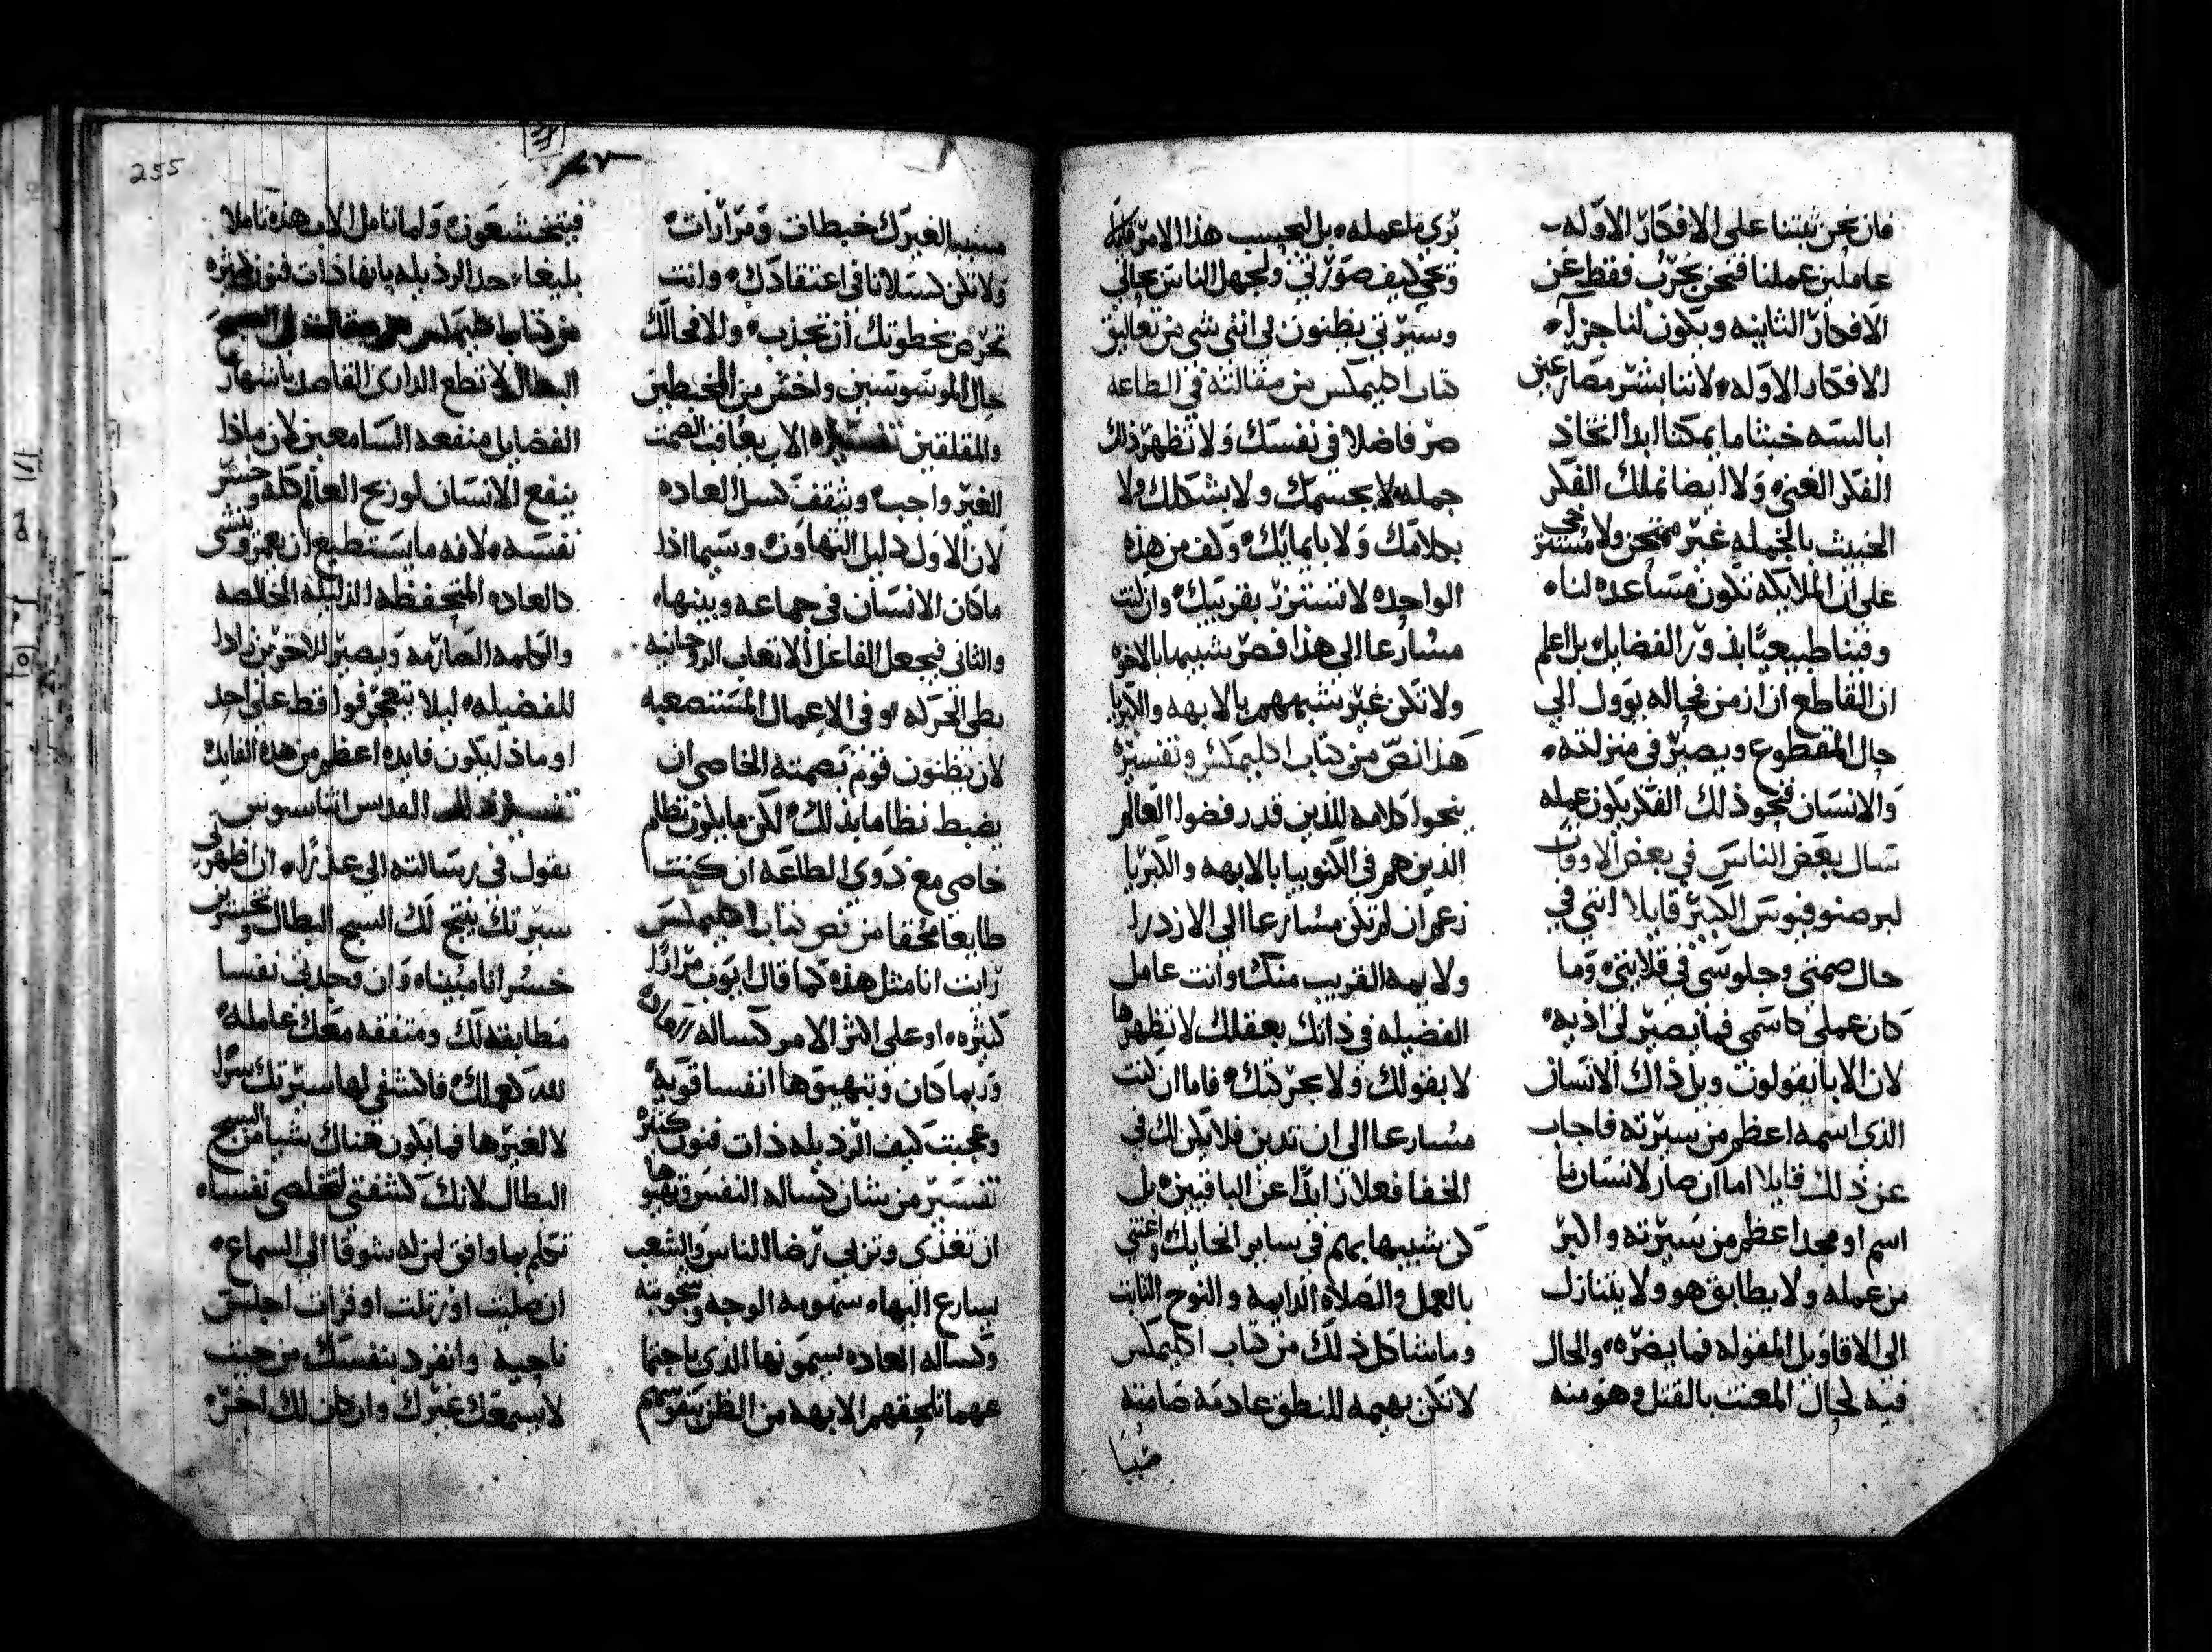 فان نحن ثبتنا على الافكار الاوله
عاملين عملنا فنحن نجرب فقط عن
الافكار الثانيه ويكون لنا جزآء
الافكار الاوله لاننا بشر مصارعين
ابالسه خبثا ما يمكنا ابدا اتخاذ
الفكر الغنى ولا ايضا نملك الفكر
الخبيث بالجمله غير ممتحن ولا
على ان الملايكه تكون مساعده لنا
وفينا طبيعيا بذور الفضايل بل اعلم
ان القاطع ان ازمن فحاله يوول الي
حال المقطوع ويصير في منزلته
والانسان فنحو ذلك الفكر يكون عمله
سال بعض الناس في بعض الاوقات
لبرصنوفيوس الكبير قايلا انني في
حال صمتي وجلوسي في قلايتي وما
كان عملي كاسمي فما يصير لي اذيه
لان الابا يقولون ويل ذاك الانسان
الذي اسمه اعظم من سيرته فاجاب
عن ذلك قايلا اما ان صار لانسان ما
اسم او مجد اعظم من سيرته واكبر
من عمله ولا يطابق هو ولا يتنازل
الي الاقاويل المقوله فما يضره والحال
فيه كحال المعنت بالقتل وهو منه
بري ما عمله بل لحسب هذا الامر
وعي كيف صورتي ولجهل الناس بحالي
وسيرتي يظنون لي انني شي من تعاليق
كتاب اكليمكس من مقالته في الطاعه
صر فاضلا في نفسك ولا تظهر ذلك
جمله لا بجسمك ولا بشكلك ولا
بكلامك ولا بايمايك وكف من هذه
الواحده لا تستزر بقريبك وان كنت
مسارعا الى هذا فصر شبيها بالاخوه
ولا تكن غير متشبههم بالابهه والكبريا
هذا نص من كتاب اكليمكس وتفسيره
ينحوا كلامه للذين قد رفضوا العالم
الذين هم في الكنوبيا بالابهه والكبريا
زعم ان لم تكن مسارعا الي الازدرا
ولا يهمه القريب منك وانت عامل
الفضيله في ذاتك بعقلك لا تظهرها
لا بقولك ولا بحركتك فاما ان كنت
مسارعا الى ان تدين فلا يكن لك في
الخفا فعلا زايدا عن الباقيين بل
كن شبيها بهم في ساير انحايك واعتني
بالعمل والصلاه الدايمه والنوح الثابت
وما شاكل ذلك من كتاب اكليمكس
لا تكن بهيمه للنطق عادمه صامته
مسببا لغيرك خبطات ومرارات
ولا تكن كسلانا في اعتقادك وانت
تحرص بخطوتك ان تجذب والا فحالك
حال الموسوسين واخش من المخبطين
والمقلقين تفسيره الاب يعاقب الصمت
الغير واجب ويثقف كسل العاده
لان الاول دليل التهاون وسيما اذا
ما كان الانسان في جماعه وبينها
والثاني فيجعل الفاعل الاتعاب الروحانيه
بطى الحركه وفي الاعمال المستصعبه
لان يظنون قوم بصمته الخاصي ان
يضبط نظاما بذلك لكن ما يكون نظام
خاصي مع ذوي الطاعه ان كنت
طايعا محقا من نص كتاب اكليمكس
رايت انا مثل هذه كما قال ايوب مرارا
كثيره او على اكثر الامر كساله
وربما كان وتنهيقها انفسا قويه
وعجبت كيف الرذيله ذات فنون كثيره
تفسير من بشان كساله النفس
ان تعذي وتربي رضا الناس والشعب
يسارع اليهاء سمومه الوجه
وكساله العاده يسمونها الذي باجتما
عهما تلحقهم الابهه من الظن بتقويمهم
فيتخشعون ولما تامل الاب هذه تاملا
بليغا حدا الرذيله بانها ذات فنون كثيره
من كتاب اكليمكس من مقالته في السبح
البطال لا تطع الداري القاصد باشهار
الفضايل منفعه السامعين لان ماذا
ينفع الانسان لو ربح العالم كله وخسر
نفسه لانه ما يستطيع ان
كالعاده المتحفظه الذليله الخالصه
والكلمه الصارمه ويصير للاخرين زادا
للفضيله ليلا يتعجرفوا قط على احد
او ماذا يكون فايده اعظم من هذه الفايده
تفسير ذلك القديس اثاسيوس
يقول في رسالته الي عذرا ان اظهرتي
سيرتك ينتج لك السبح البطال وتخسرين
خسرانا مبينا وان وجدتي نفسا
مطابقه لك ومتفقه معك عامله
لله كعملك فاكشفي لها سيرتك سرا
لا لغيرها فما يكون هناك شيا من السبح
البطال لانك كشفتي لتخلصي نفسا
تكلم بما وافق لمن له شوقا الي السماع
ان صليت او رتلت او قرات اجلس
ناحيه وانفرد بنفسك من حيث
لا يسمعك غيرك وان كان لك اخره
255